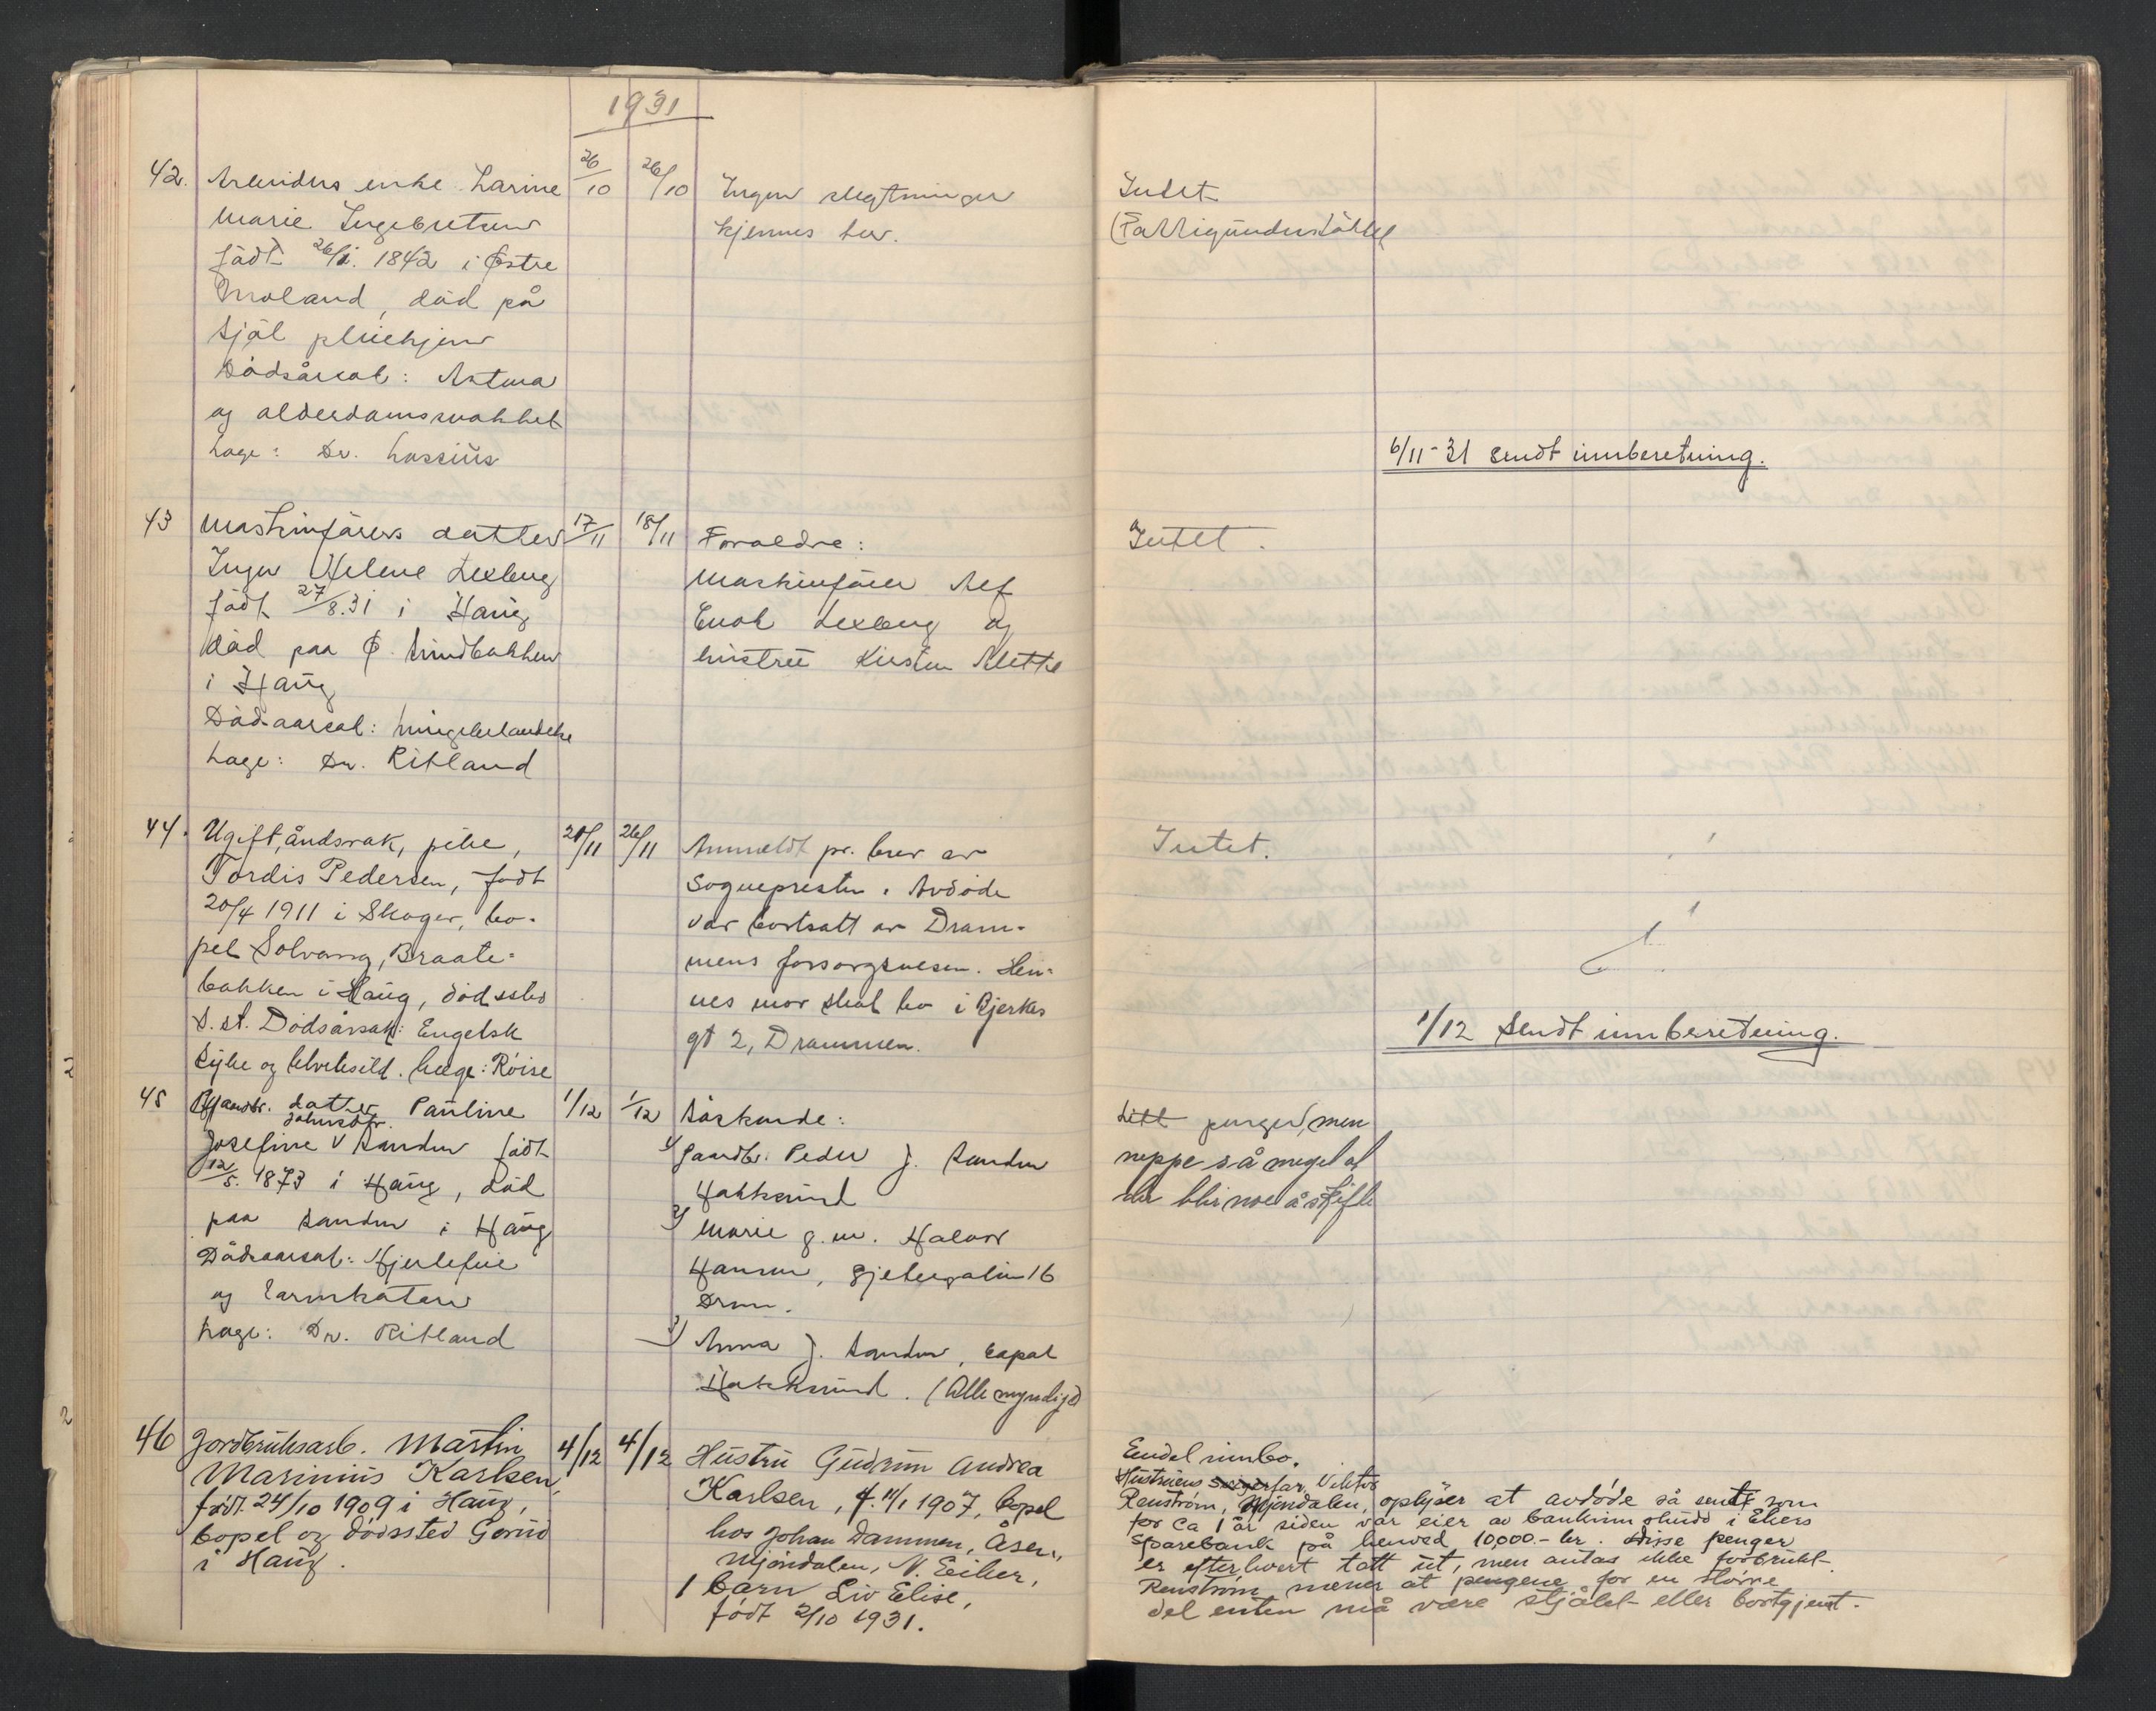 1931
42.
Arbeiders enke Larine
Marie Ingebretsen
født 26/1. 1842 i Østre
Moland, død på
Sjøl pleiehjem
Dødsårsak: Astma
og alderdomssvakhet
Læge: Dr. Lassius
26/10
26/10
Ingen slegtninger
kjennes her.
Intet
(Fattigunderstøttet
6/11-31 sendt innberetning.
43
Maskinførers datter
Inger Helene Lexberg
født 27/8.31 i Haug
død paa Ø. Lindbakken
i Haug
Dødsaarsak: Lungebetændelse
Læge: Dr. Ritland
17/11
18/11
Forældre:
Maskinfører Alf
Enok Lexberg og
hustru Kirsten Alette
Intet.
44.
Ugift, åndsvak, pike,
Tordis Pedersen, født
20/4 1911 i Skoger, bo-
pel Solvang, Braate-
bakken i Haug, dødssted
s. st. Dødsårsak: Engelsk
syke og helvetesild. Læge: Røise
20/11
26/11
Anmeldt pr. brev av
Sognepresten. Avdøde
var bortsatt av Dram-
mens forsorgsvesen. Hen-
nes mor skal bo i Bjerkes
gt 2, Drammen.
Intet.
1/12 Sendt innberetning.
45
Gaardbr. datter Pauline
Johnsdtr.
Josefine V Sanden født
12/5. 1873 i Haug, død
paa Sanden i Haug
Dødsaarsak: Hjertefeil
og Tarmkatarr
Læge: Dr. Ritland
1/12
1/12
Søskende:
1) Gaardbr. Peder J. Sanden
Hokksund
2) Marie g.m. Halvor
Hansen, Gjetergaten 16
Drmn.
3) Anna J. Sanden, bopæl
Hokksund. (Alle myndige)
Litt penger, men
neppe så meget at
der blir noe å skifte
46
Jordbruksarb. Martin
Marinius Karlsen,
født 24/10 1909 i Haug,
bopel og dødssted Gorud
i Haug.
4/12
4/12
Hustru Gudrun Andrea
Karlsen, f. 11/1 1907, bopel
hos Johan Dammen, Åsen,
Mjøndalen, N. Eiker,
1 barn Liv Elise,
født 2/10 1931.
Endel innbo.
Hustruens svigerfar, Viktor
Renstrøm, Mjøndalen, oplyser at avdøde så sent som
for ca 1 år siden var eier av bankinnskudd i Ekers
Sparebank på henved 10,000.- kr. Disse penger
er efterhvert tatt ut, men antas ikke forbrukt.
Renstrøm mener at pengene for en større
del enten må være stjålet eller bortgjemt.